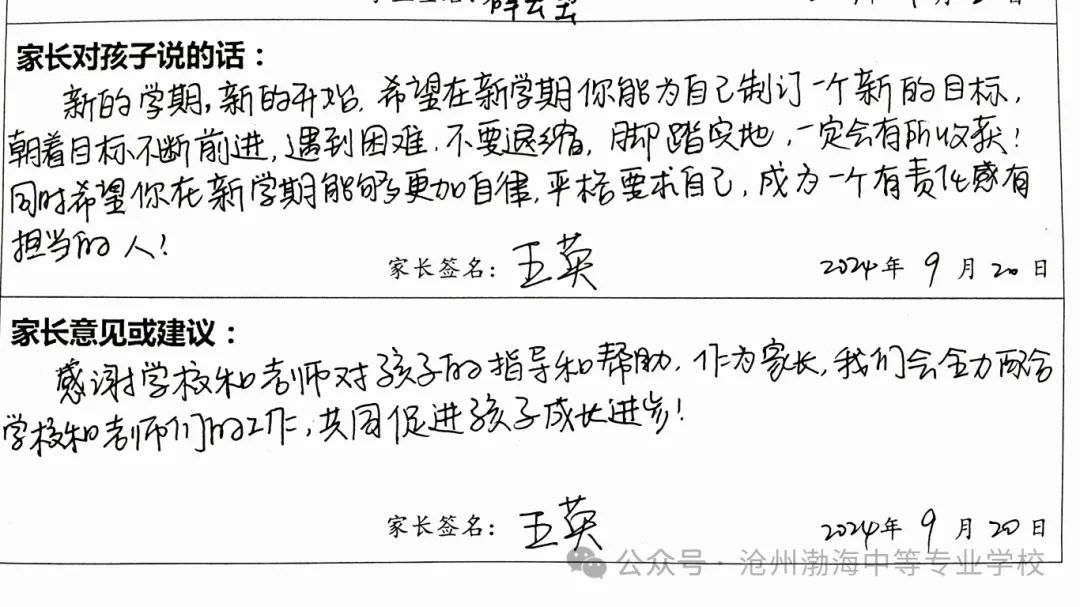 家长对孩子说的话：
新的学期，新的开始，希望在新学期你能为自己制订一个新的目标，
朝着目标不断前进，遇到困难，不要退缩，脚踏实地，一定会有所收获！
同时希望你在新学期能够更加自律，严格要求自己，成为一个有责任感有
担当的人！
家长签名：王英 2024年9月20日
家长意见或建议：
感谢学校和老师对孩子的指导和帮助，作为家长，我们会全力配合
学校和老师们的工作，共同促进孩子成长进步！
家长签名：王英 2024年9月20日
公众号·沧州渤海中等专业学校